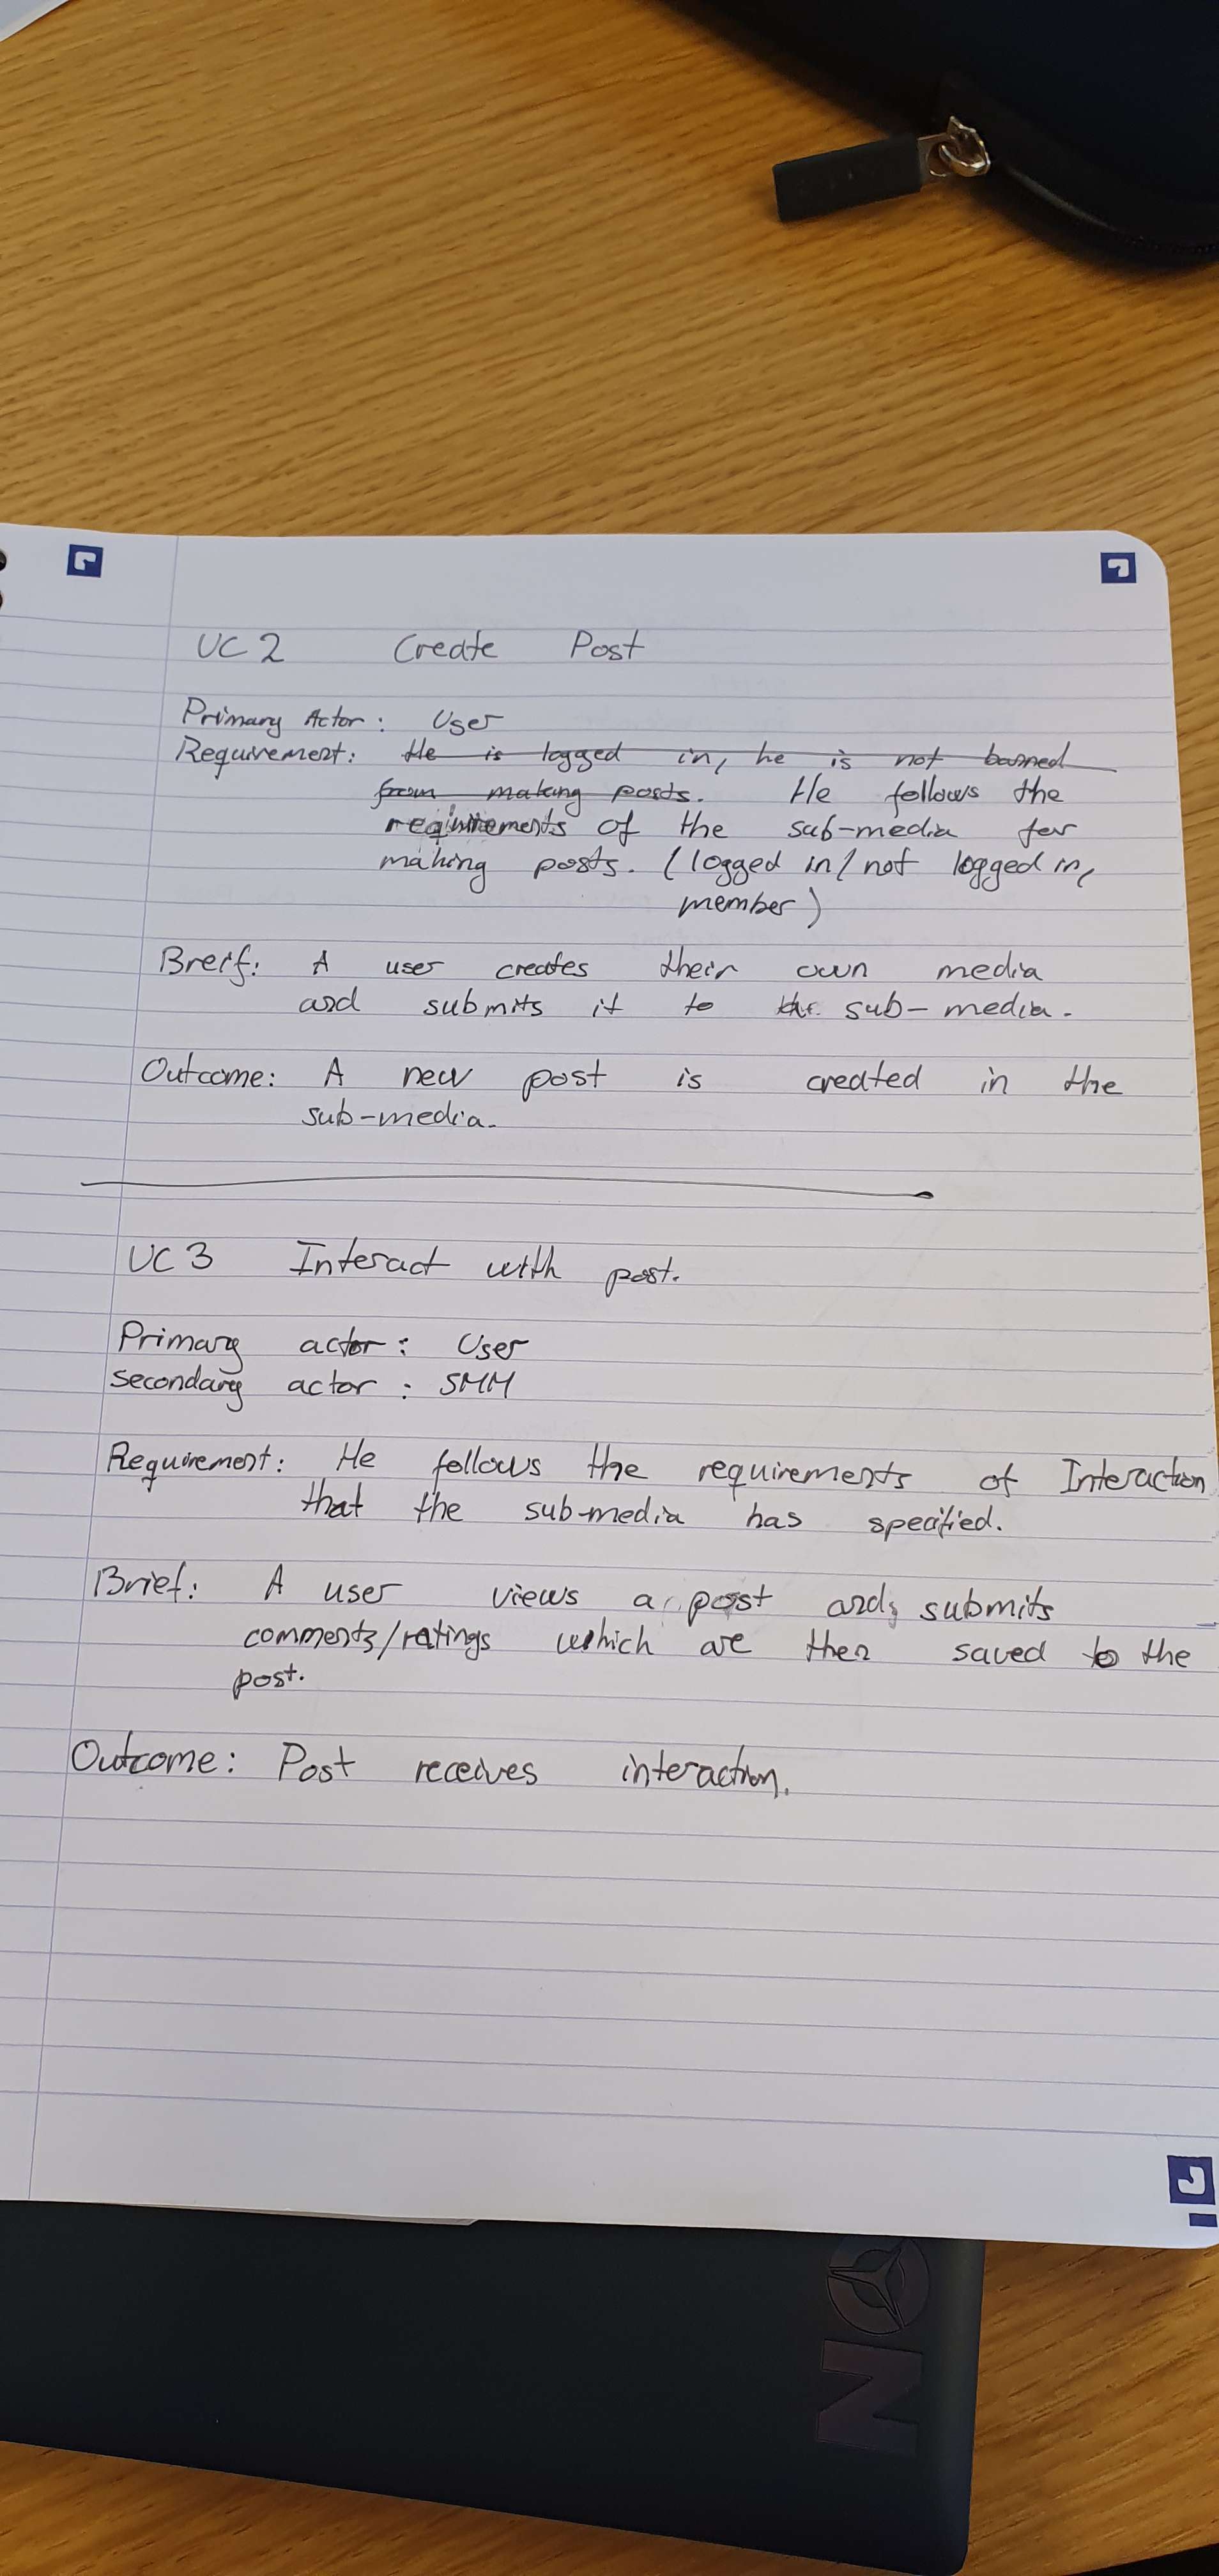 UC 2 Create Post
Primary Actor: User
Requirement: He is logged in, he is not banned
from making posts. He follows the
requirements of the sub-media for
making posts. (logged in/not logged in,
member)
Breif: A user creates their own media
and submits it to the sub-media.
Outcome: A new post is created in the
sub-media.
UC 3 Interact with post.
Primary actor: User
Secondary actor: SMM
Requirement: He follows the requirements of Interaction
that the sub-media has specified.
Brief: A user views a post and submits
comments/ratings which are then saved to the
post.
Outcome: Post receives interaction.
NO